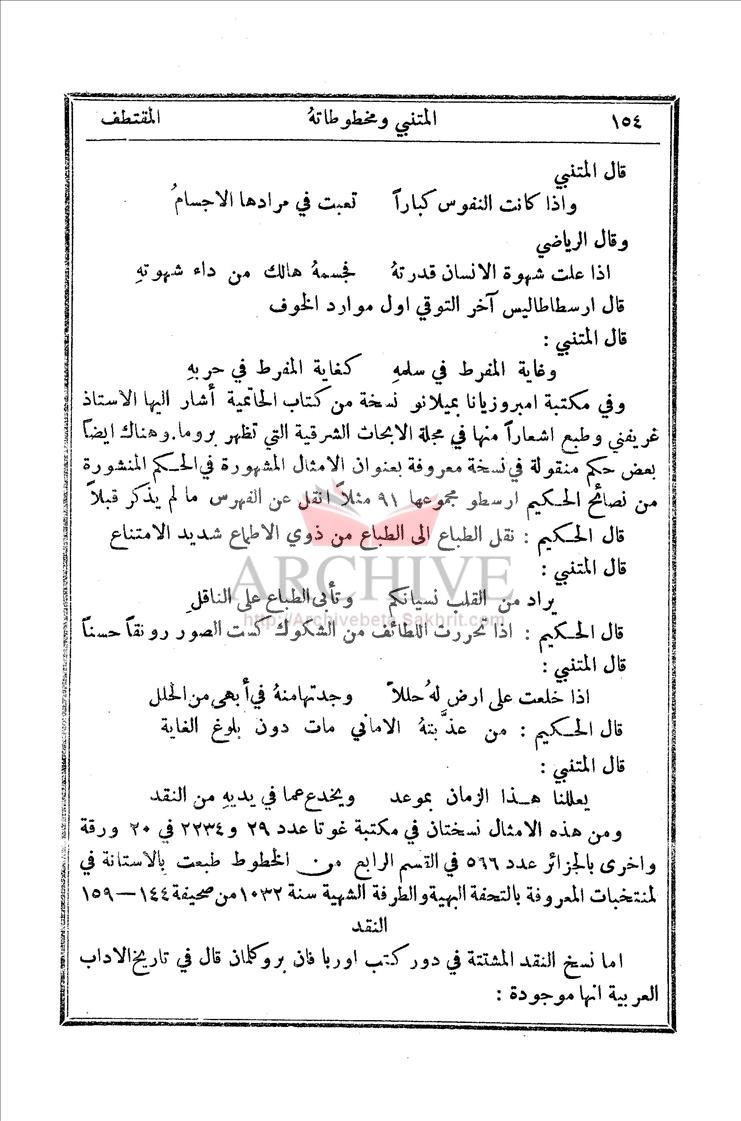 ١٥٤ المتنبي ومخطوطاتهُ المقتطف
قال المتنبي
واذا كانت النفوس كباراً تعبت في مرادها الاجسامُ
وقال الرياضي
اذا علت شهوة الانسان قدرتهُ فجسمهُ هالك من داء شهوتهِ
قال ارسطاطاليس آخر التوقي اول موارد الخوف
قال المتنبي :
وغاية المفرط في سلمهِ كغاية المفرط في حربهِ
وفي مكتبة امبروزيانا بميلانو نسخة من كتاب الحاتمية أشار اليها الاستاذ
غريفني وطبع اشعاراً منها في مجلة الابحاث الشرقية التي تظهر بروما. وهناك ايضاً
بعض حكم منقولة في نسخة معروفة بعنوان الامثال المشهورة في الحكم المنشورة
من نصائح الحكيم ارسطو مجموعها ٩١ مثلاً انقل عن الفهرس ما لم يذكر قبلاً
قال الحكيم : نقل الطباع الى الطباع من ذوي الاطماع شديد الامتناع
ARCHIVE
قال المتنبي :
يراد من القلب نسيانكم وتأبى الطباع على الناقلِ
http://Archivebeta.Sakhrit.com
قال الحكيم : اذا تحررت اللطائف من الشكوك كست الصور رونقاً حسناً
قال المتنبي :
اذا خلعت على ارض لهُ حللاً وجدتها منهُ في أبهى من الحلل
قال الحكيم : من عذَّبتهُ الاماني مات دون بلوغ الغاية
قال المتنبي :
يعللنا هذا الزمان بموعد ويخدع عما في يديهِ من النقد
ومن هذه الامثال نسختان في مكتبة غوتا عدد ٢٩ و ٢٢٣٤ في ٢٠ ورقة
واخرى بالجزائر عدد ٥٦٦ في القسم الرابع من الخطوط طبعت بالاستانة في
لمنتخبات المعروفة بالتحفة البهية والطرفة الشهية سنة ١٠٣٢ من صحيفة ١٤٤ — ١٥٩
النقد
اما نسخ النقد المشتتة في دور كتب اوربا فان بروكلمان قال في تاريخ الاداب
العربية انها موجودة :